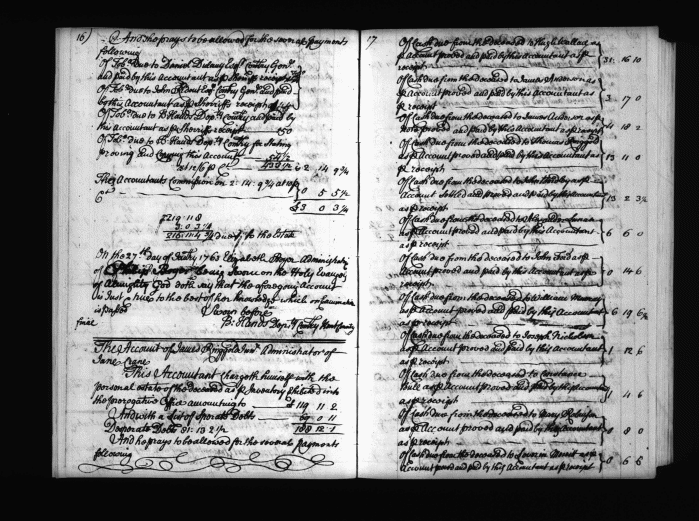 16)
And she prays to be allowed for the several payments
following
Of Tobo. due to Daniel Dulany Esqr. Comry. Genl.
and paid by this Accountant as pr Sheriffs receipt
Of Tobo. due to John Esqr. Comry. Genl. and paid
by this Accountant as pr Sheriffs receipt
Of Tobo. due to B: Hands Depy. Comry and paid by
this Accountant as pr Sheriffs receipt 50
Of Tobo. due to B: Hands Depy. Comry for Stating
proving and Copying this Account 2 14 9¾
The Accountants Commission on 2: 14: 9¾ at 10 p
Ct 0 5 5½
£3 0 3¼
£219 11 8
3: 0 3¼
216: 11: 4¾ due for the Estate
On the 27th day of 1763 Elizabeth Administx
of Philip being Sworn on the Holy Evangely
of Almighty God doth say that the aforegoing Account
is Just & true to the best of her Knowledge which on Examination
is passed Sworn before
B: Hands Depy. Comry Kent County
The Account of James Ringgold Administrator of
Jane Crane
This Accountant Chargeth himself with the
personal estate of the deceased as pr Inventory Returned into
the prerogative Office amounting to £119 11 2
And with a List of Sperate Debts 69 0 11
Desperate Debts 81: 13 2½ 188 12: 1
And he prays to be allowed for the several payments
following
17
Of Cash due from the deceased to Hugh Wallace as
pr Account proved and paid by this Accountant as pr
receipt 31 16 10
Of Cash due from the deceased to James Anderson as
pr Account proved and paid by this Accountant as
pr receipt 3 17 0
Of Cash due from the deceased to James Anderson as pr
Note proved and paid by this Accountant as pr receipt 4 18 2
Of Cash due from the deceased to Thomas Ringgold
as pr Account proved and paid by this Accountant as
pr receipt 13 11 0
Of Cash due from the deceased to as pr
Account Settled and proved and paid by this Accountant
as pr receipt 13 2 3½
Of Cash due from the deceased to
as pr Account proved and paid by this Accountant
as pr receipt 6 6 0
Of Cash due from the deceased to John Ford as pr
Account proved and paid by this Accountant as pr
receipt 0 14 6
Of Cash due from the deceased to William Murray
as pr Account proved and paid by this Accountant
as pr receipt 6 19 6½
Of Cash due from the deceased to Joseph Nicholson
as pr Account proved and paid by this Accountant
as pr receipt 1 12 6
Of Cash due from the deceased to Constance
Hall as pr Account proved and paid by this Accountant
as pr receipt 1 4 6
Of Cash due from the deceased to Mary
as pr Account proved and paid by this Accountant
as pr receipt 8 0
Of Cash due from the deceased to as pr
Account proved and paid by this Accountant as pr receipt 0 6 6